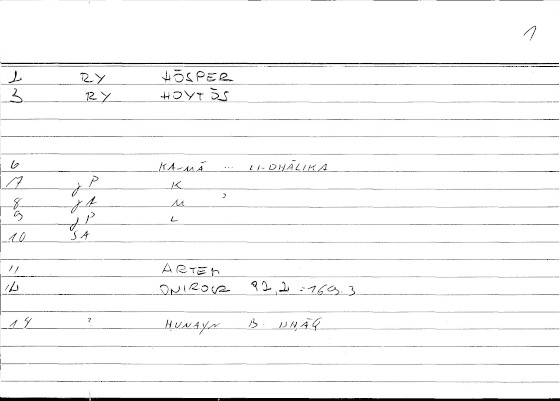 1
1 RY HŌSPER
3 RY HOYTŌS
6 KA-MĀ ... LI-DHĀLIKA
7 gP K
8 gA M ?
9 gP L
10 SA
11 ARTEM
12 ONIROCR 82,2 = 169.3
14 ? ḤUNAYN B.